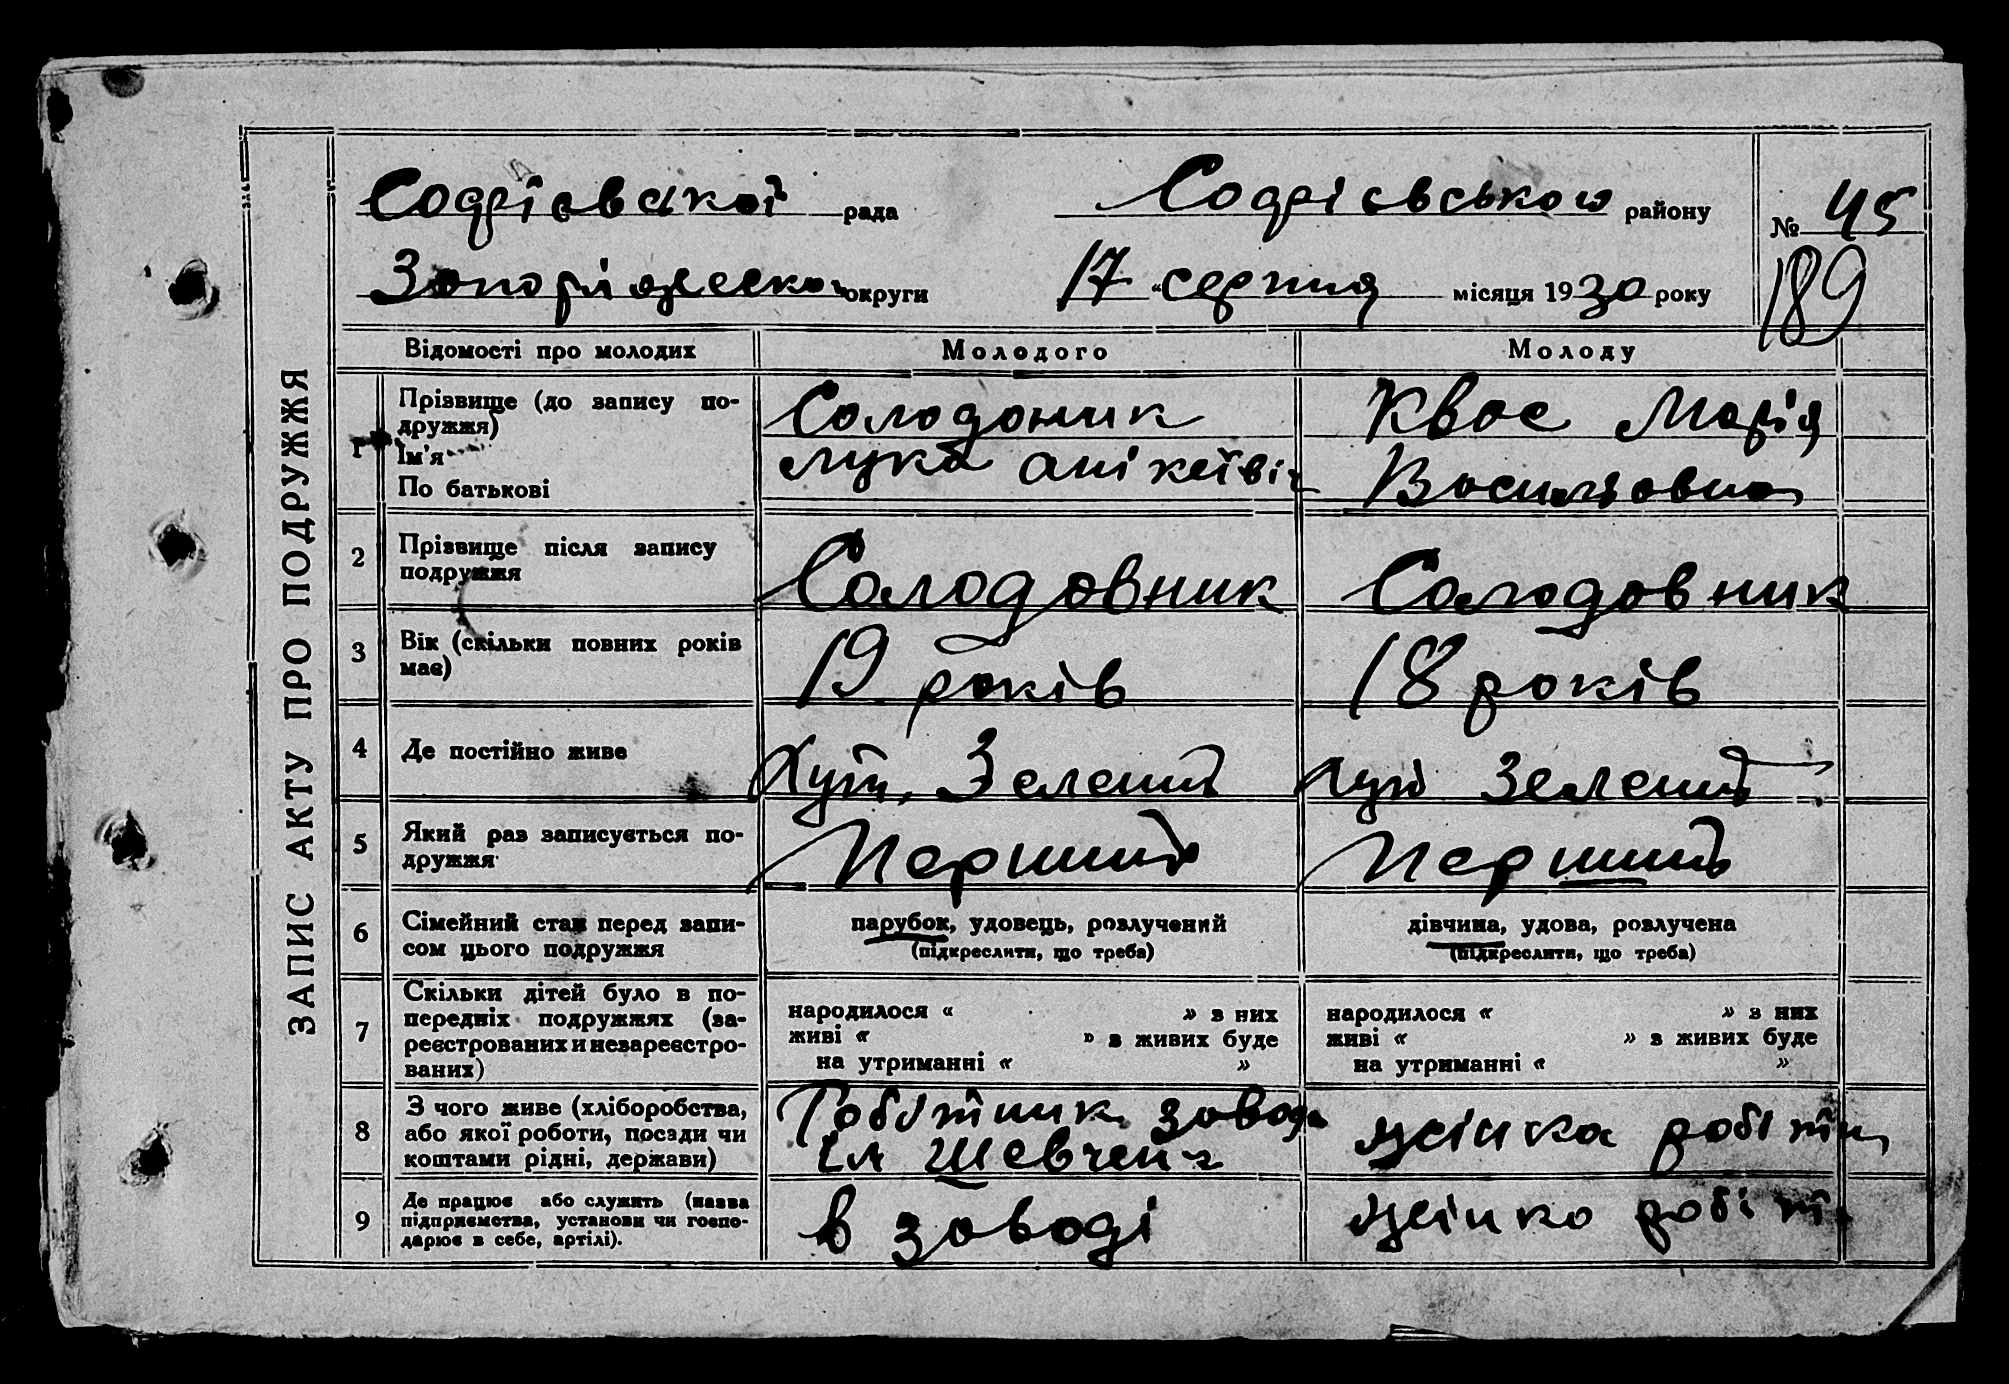 ЗАПИС АКТУ ПРО ПОДРУЖЖЯ
Софіївської рада Софіївського району № 45
Запоріжської округи 17 "серпня місяця 1930 року 189
Відомості про молодих Молодого Молоду
1 Прізвище (до запису по-
дружжя)
Ім'я
По батькові
Солодоник
Лука Анікеївіч
Квас Марія
Васильовна
2 Прізвище після запису
подружжя
Солодовник Солодовник
3 Вік (скільки повних років
має)
19 років 18 років
4 Де постійно живе Хут. Зелений Хут Зелений
5 Який раз записується по-
дружжя
Перший Перший
6 Сімейний стан перед запи-
сом цього подружжя
парубок, удовець, розлучений
(підкреслити, що треба)
дівчина, удова, розлучена
(підкреслити, що треба)
7 Скільки дітей було в по-
передніх подружжях (за-
реєстрованих и незареєстро-
ваних)
народилося « » з них
живі « » з живих буде
на утриманні « »
народилося « » з них
живі « » з живих буде
на утриманні « »
8 З чого живе (хліборобства,
або якої роботи, посади чи
коштами рідні, держави)
Робітник завод
ім Шевченк
жінка робітн
9 Де працює або служить (назва
підприємства, установи чи госпо-
дарює в себе, артілі).
в заводі
жінка робітн